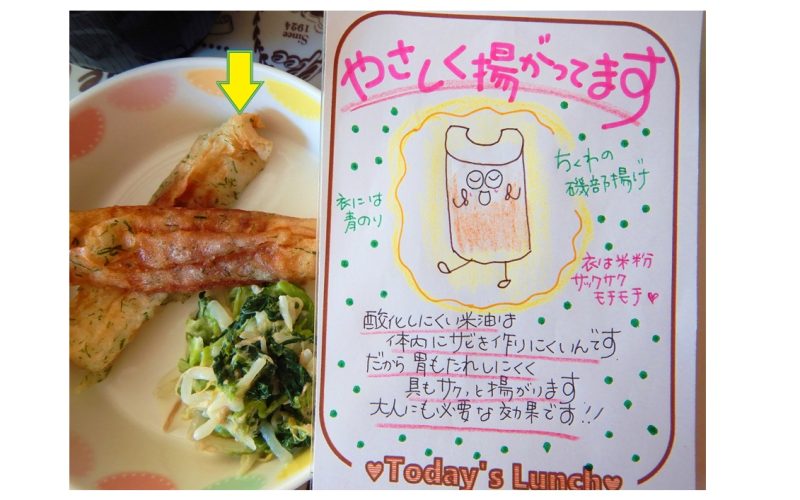 Since
1924
やさしく揚がってます
ちくわの
磯部揚げ
衣には
青のり
衣は米粉
サックサク
モチモチ♥
酸化しにくい米油は
体内にサビを作りにくいんです
だから胃もたれしにくく
具もサクッと揚がります
大人にも必要な効果です!!
♥Today's Lunch♥